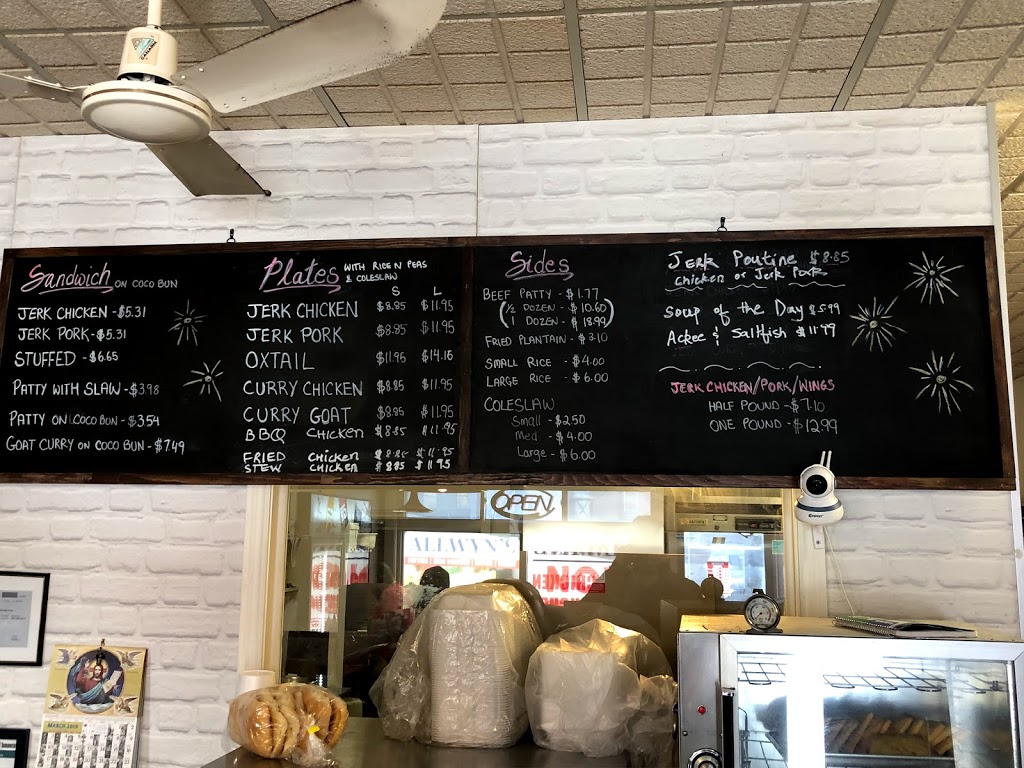 CANARM
Sandwich ON COCO BUN
JERK CHICKEN - $5.31
JERK PORK - $5.31
STUFFED - $6.65
PATTY WITH SLAW - $3.98
PATTY ON COCO BUN - $3.54
GOAT CURRY ON COCO BUN - $7.49
Plates WITH RICE N PEAS
& COLESLAW
S L
JERK CHICKEN $8.85 $11.95
JERK PORK $8.85 $11.95
OXTAIL $11.95 $14.16
CURRY CHICKEN $8.85 $11.95
CURRY GOAT $8.85 $11.95
BBQ CHICKEN $8.85 $11.95
FRIED Chicken $8.85 $11.95
STEW CHICKEN $8.85 $11.95
Sides
BEEF PATTY - $1.77
(½ DOZEN - $10.60)
(1 DOZEN - $18.99)
FRIED PLANTAIN - $3.10
SMALL RICE - $4.00
LARGE RICE - $6.00
COLESLAW
Small - $2.50
Med - $4.00
Large - $6.00
Jerk Poutine $8.85
Chicken or Jerk Pork
Soup of the Day $5.99
Ackee & Saltfish $11.99
JERK CHICKEN/PORK/WINGS
HALF POUND - $7.10
ONE POUND - $12.99
OPEN
ALLWYN'S
MARCH 2019